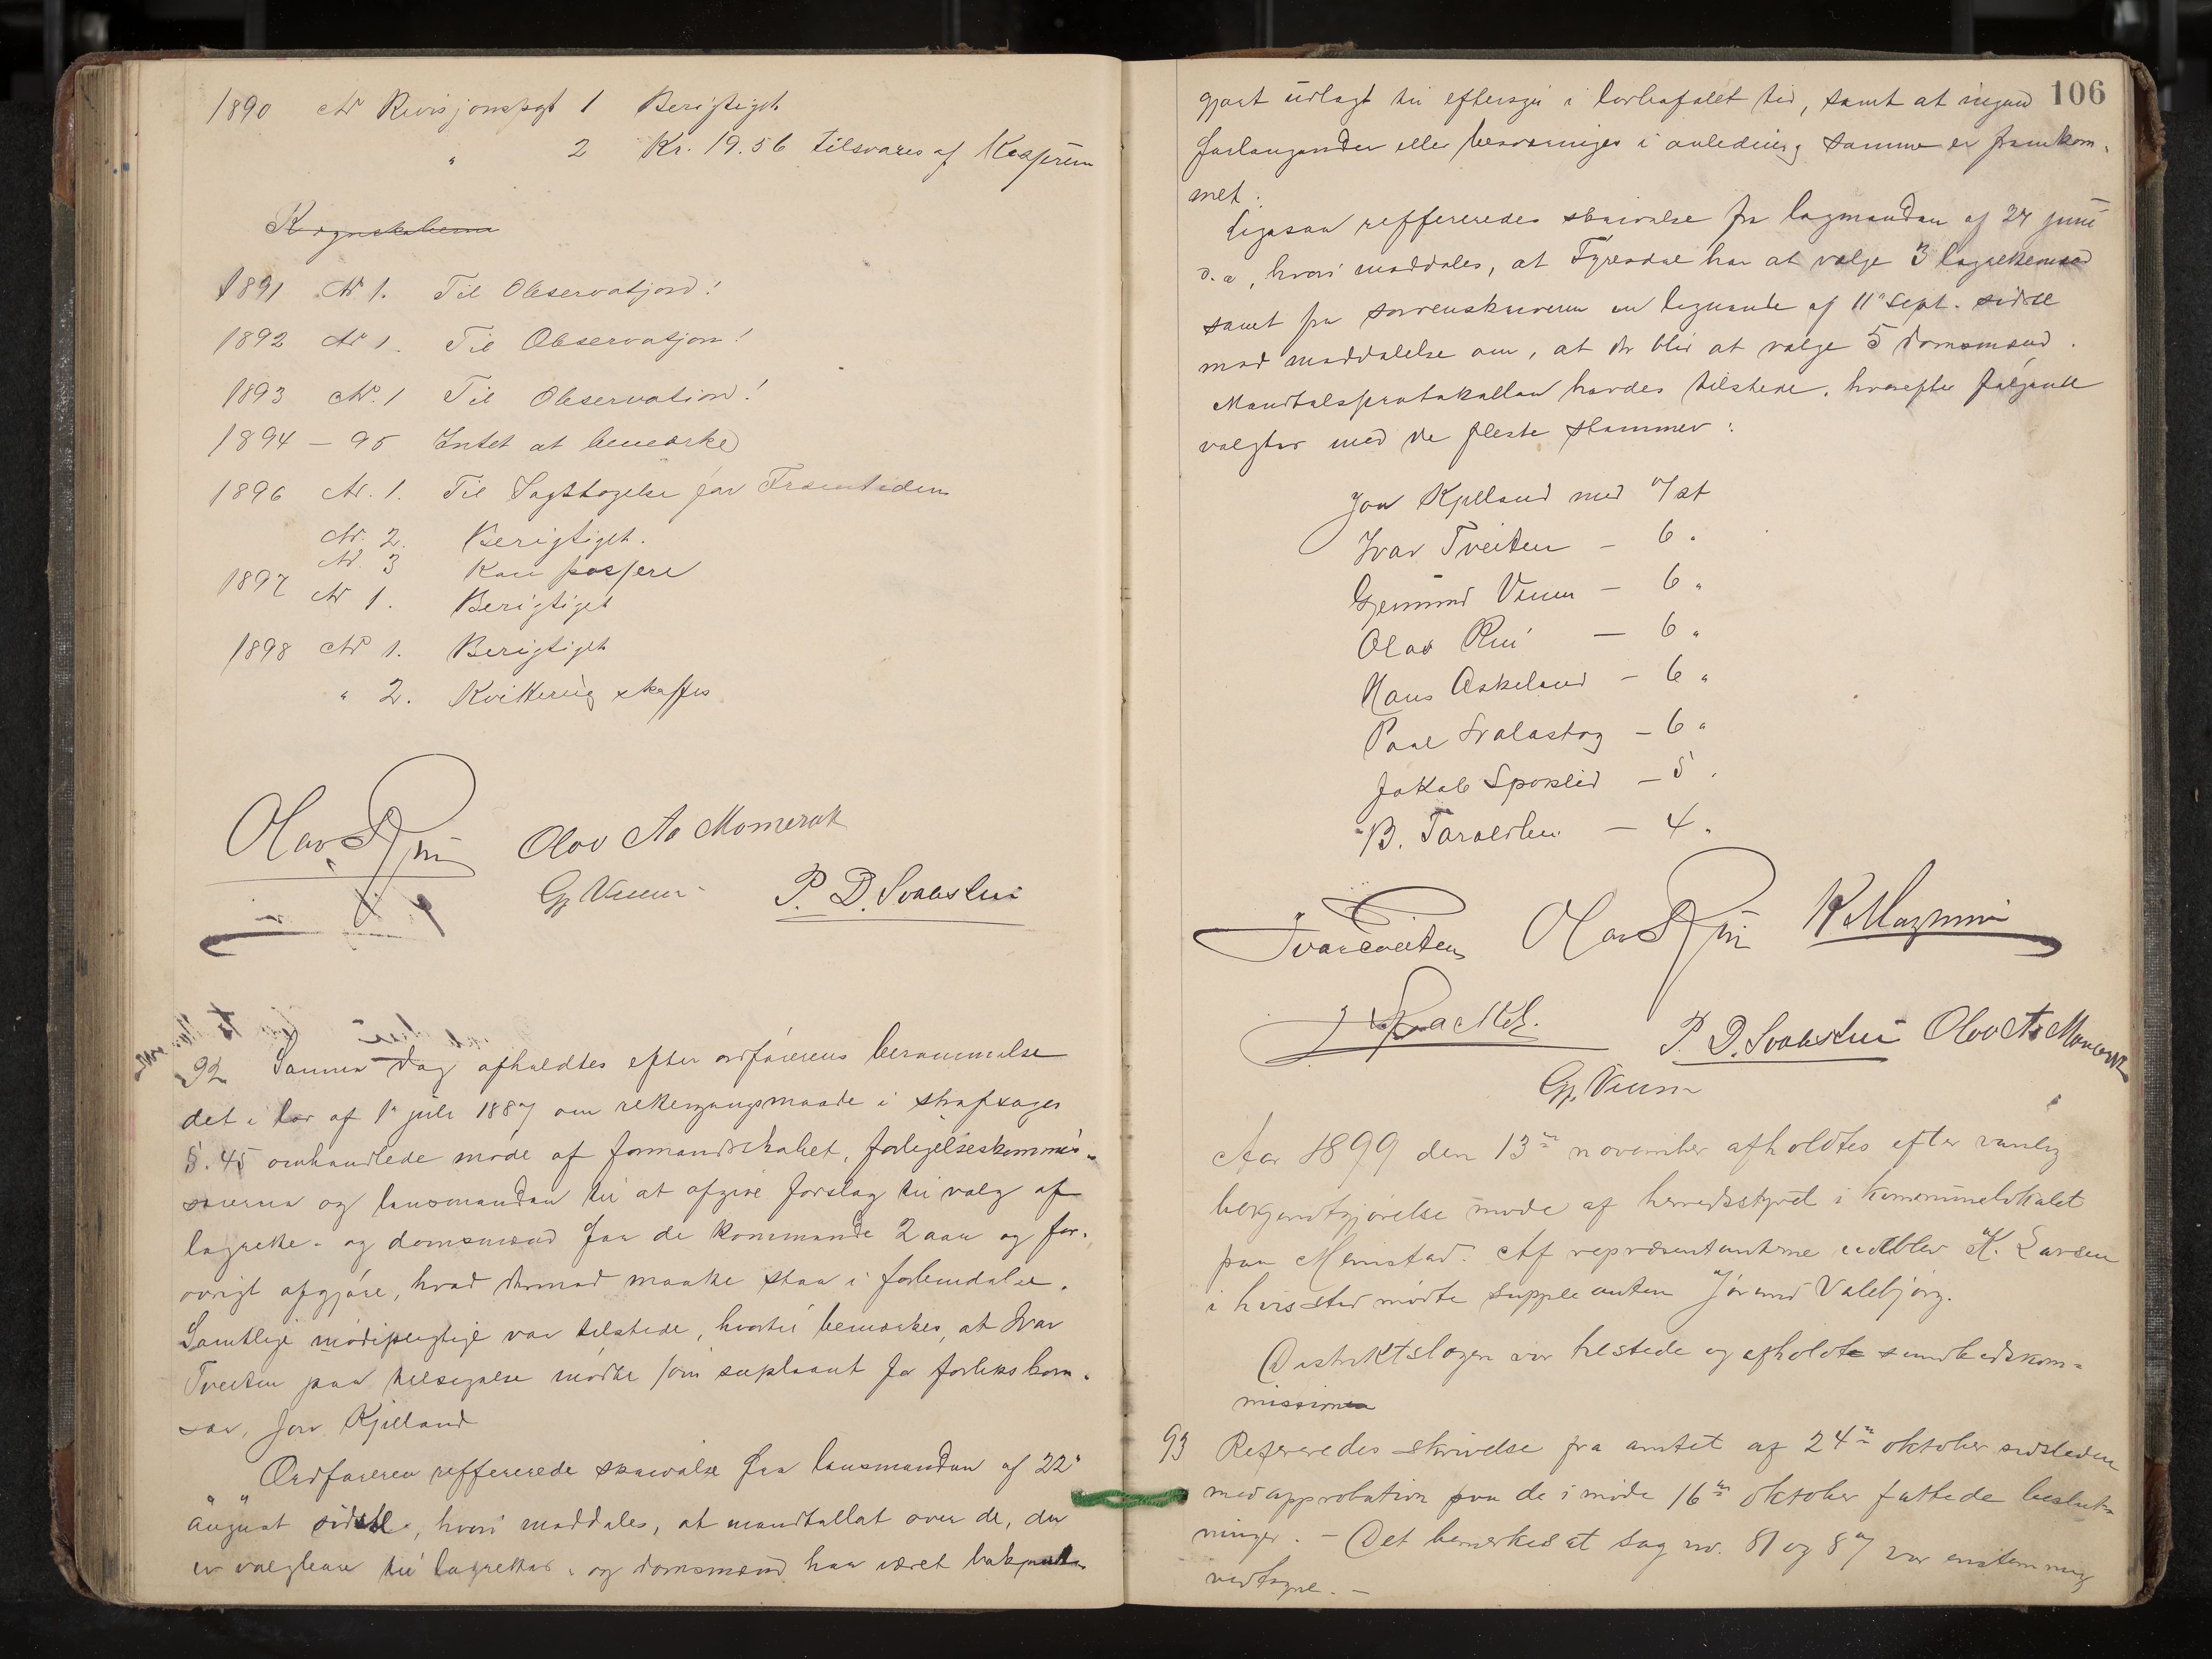 1890 No Revisjonspgt 1 Berigtiget
" 2 Kr. 19.56 tilsvares af Kasseren
Regnskaberne
1891 No 1. Til Observatjon!
1892 No 1. Til Observatjon!
1893 No. 1 Til Observation!
1894 – 95 Intet at bemærke
1896 No. 1. Til Iagttagelse for Fremtiden
No. 2. Berigtiget.
No. 3 Kan passere
1897 No 1. Berigtiget
1898 No 1. Berigtiget
" 2. Kvittering skaffes
Olav Rui Olav As Momerak
Gj Veum P. D. Svalestui
92 Samme dag afholdtes efter ordførerens berammelse
det i lov af 1" juli 1887 om rettergangsmaade i strafsager
§. 45 omhandlede møde af formandskabet, forligelseskommis-
særerne og lensmanden til at afgive forslag til valg af
lagrette- og domsmænd for de kommende 2 aar og for-
øvrigt afgjøre, hvad dermed maatte staa i forbindelse.
Samtlige mødepligtige var tilstede, hvortil bemærkes, at Ivar
Tveiten paa tilsigelse mødte som supleant for forlikskom-
sær, Jon Kjilland
Ordføreren reffererede skrivelse fra lensmanden af 22"
august sidstl., hvori meddeles, at mandtallet over de, der
er valgbare til lagrettes- og domsmænd har været bekjendt-
106
gjort udlagt til eftersyn i lovbefalet tid, samt at ingen
forlangender eller besværinger i anledning samme er fremkom-
met.
Ligesaa reffereredes skrivelse fra lagmanden af 27 juni
d.a, hvori meddeles, at Fyresdal har at vælge 3 lagrettemænd
samt fra sorenskriveren en lignende af 11" Sept. sidstl
med meddelelse om, at der blir at vælge 5 domsmænd.
Mandtalsprotokollen havdes tilstede, hvorefter følgende
valgtes med de fleste stemmer:
Jon Kjilland med 7 st
Ivar Tveiten – 6 "
Gjermund Veum – 6 "
Olav Rui – 6 "
Hans Askeland – 6 "
Paal Svalastog – 6 "
Jakob Spokelid – 5 "
B. Taraldlien – 4 "
Ivar Tveiten Olav Rui
P. D. Svalestui Olav As Momerak
Gj. Veum
Aar 1899 den 13de november afholdtes efter vanlig
bekjendtgjørelse møde af herredsstyret i kommunelokalet
paa Moenstad. Af repræsentanterne udeblev K. Larsen
i hvis sted mødte suppleanten Jørund Valebjørg.
Distriktslægen var tilstede og afholdt sundhedskom-
mission
93 Refereredes skrivelse fra amtet af 24de oktober sidstleden
med approbation paa de i møde 16de oktober fattede beslut-
ninger. – Det bemerkes at sag no. 81 og 87 var enstemmig
vedtagne. –